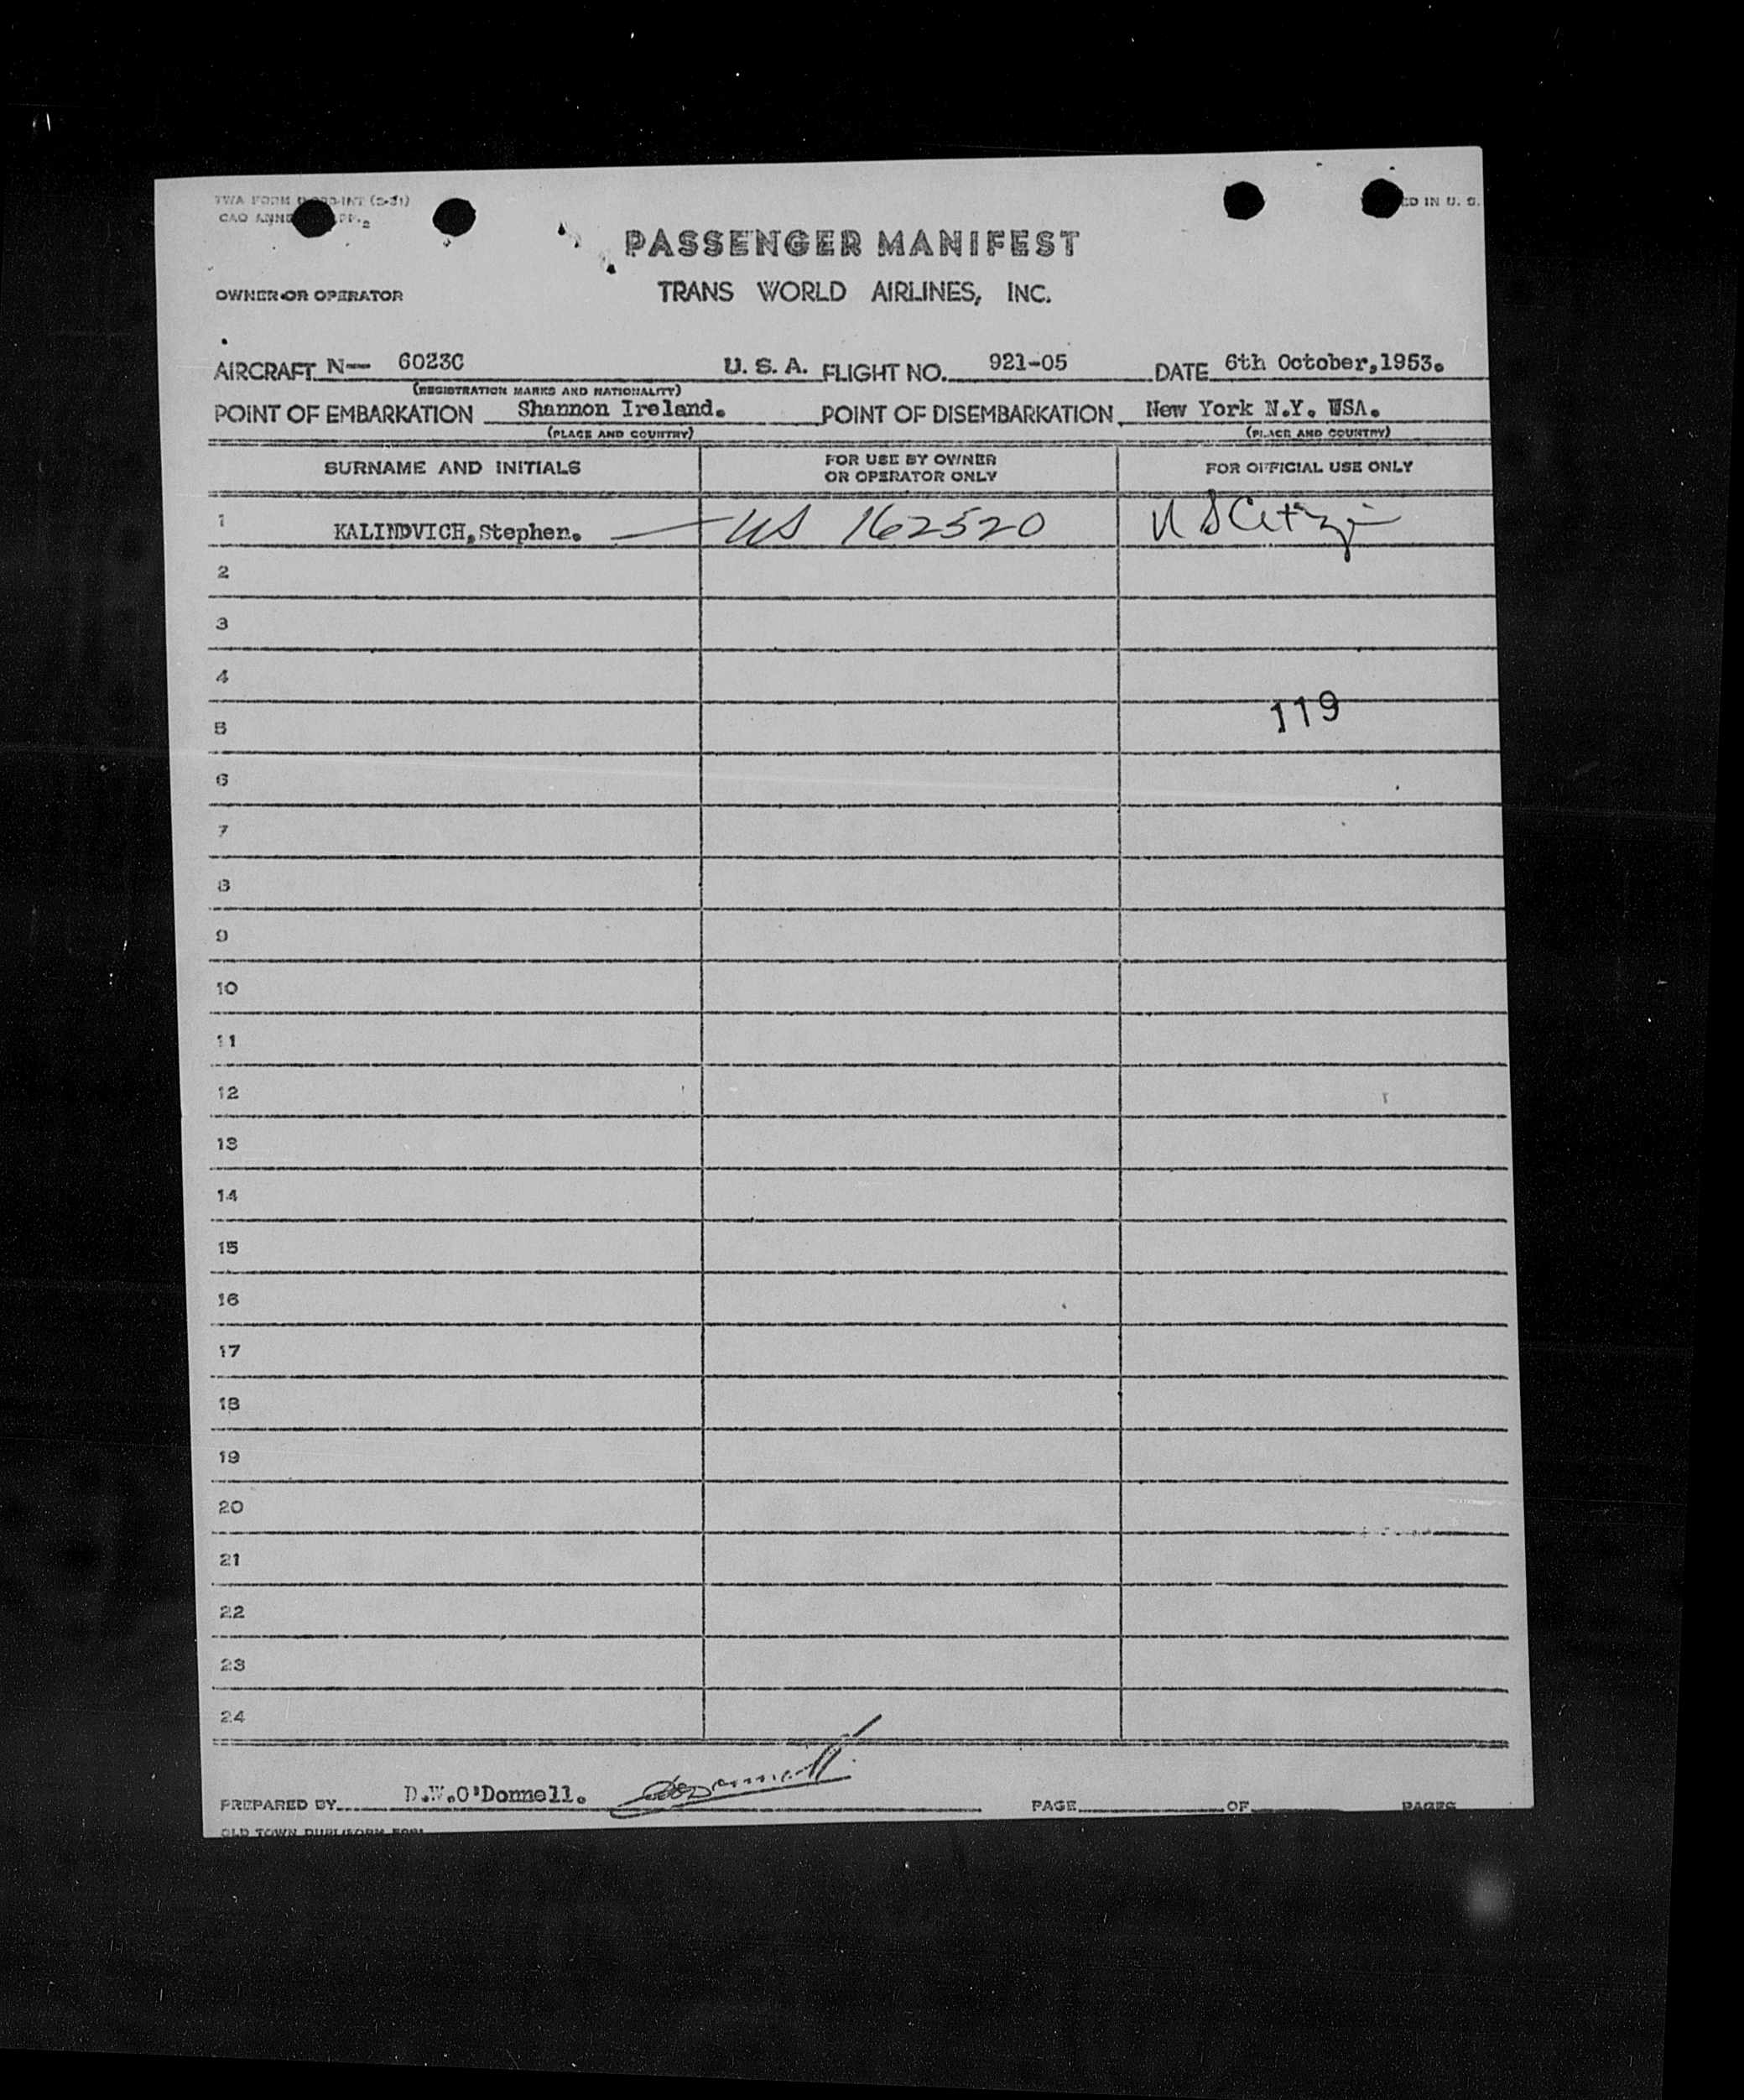 TWA FORM INT (5-51)
CAO ANNE
ED IN U. S.
PASSENGER MANIFEST
OWNER OR OPERATOR TRANS WORLD AIRLINES, INC.
AIRCRAFT N-- 6023C U. S. A. FLIGHT NO. 921-05 DATE 6th October,1953.
(REGISTRATION MARKS AND NATIONALITY)
POINT OF EMBARKATION Shannon Ireland. POINT OF DISEMBARKATION New York N.Y. USA.
(PLACE AND COUNTRY) (PLACE AND COUNTRY)
SURNAME AND INITIALS FOR USE BY OWNER OR OPERATOR ONLY FOR OFFICIAL USE ONLY
1 KALINDVICH,Stephen. US 162520 U S Citizen
2
3
4
119
5
6
7
8
9
10
11
12
13
14
15
16
17
18
19
20
21
22
23
24
PREPARED BY D.W.O'Donnell. O'Donnell PAGE OF PAGES
OLD TOWN